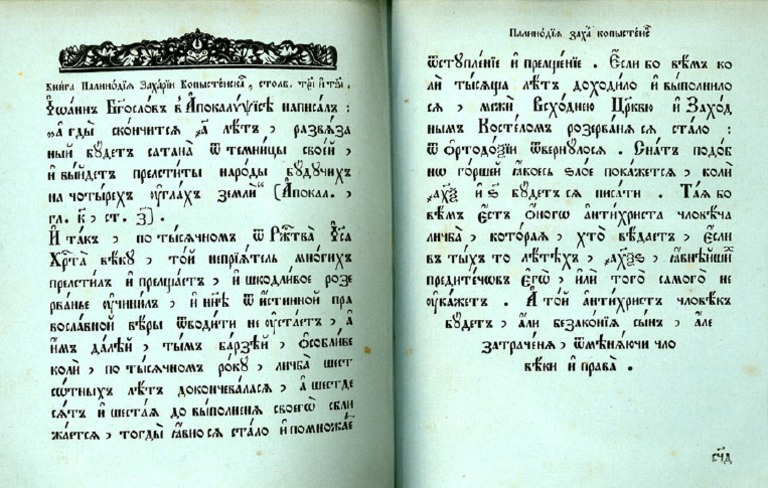 Кни́га Палино́дїѧ Заха́рїи Копысте́нскаⷢ҇, столп. тре́ и҆ тре́.
І҆ѡа́ннъ Бг҃осло́въ в̾ А҆покалѵ́ѱїсѣ написа́лъ :
„а҆ гды̀ ско́нчитсѧ ҂а҃ лѣ́тъ , развѧ́за
ный бꙋ́детъ сатана̀ ѿ темни́цы своє́й ,
и҆ вы́йдетъ прелсти́ти наро́ды бꙋ́дꙋчихъ
на чоты́рехъ ѹ҆́глахъ землѝ“ (А҆покал. ,
гл. к҃ , ст. з҃) .
И҆ та́къ , по ты́сѧчномъ ѿ Рж҃тва̀ І҆́са
Хрⷭ҇та̀ вѣ́кꙋ , то́й непрїѧ́тель мно́гихъ
прелсти́лъ и҆ прелща́етъ , и҆ шкодли́вое розе
рва́нье ѹ҆чини́лъ , и҆ нн҃ѣ ѿ и҆́стинной пра
восла́вной вѣ́ры ѿводи́ти не ѹ҆стае́тъ , а҆
и҆́мъ да́лѣй , ты́мъ ба́рзѣй , ѻ҆со́бливе
колѝ , по ты́сѧчномъ ро́кꙋ , личба̀ шест
со́тныхъ лѣ́тъ доконче́валасѧ , а҆ шестде
сѧ́тъ и҆ шеста́ѧ до вы́полненїѧ своегѡ̀ сбли
жа́етсѧ , тогды̀ ꙗ҆́вно сѧ ста́ло и҆ помножае҆
Палино́дїѧ Заха́ Копысте́нскⷢ҇
ѿстꙋпле́нїе и҆ прелще́нїе . Є҆́сли бо вѣ́мъ ко
лѝ ты́сѧща лѣ́тъ доходи́ло и҆ выполни́ло
сѧ , межѝ Всхо́днею Цр҃квю и҆ Захо́д
нымъ Косте́ломъ розерва́нїѧ сѧ ста́ло :
ѿ ѻ҆ртодо́ѯїи ѿверну́лосѧ . Сна́тъ подо́б
нѡ го́ршей ꙗ҆ко́есь ѕло́е пока́жетсѧ , колѝ
҂ахѯ҃ и҆ ѕ҃ бꙋ́детъ сѧ писа́ти . Та́ѧ бо
вѣ́мъ є҆́стъ ѻ҆́ного а҆нтихри́ста чловѣ́ча
личба̀ , кото́раѧ , хто̀ вѣ́даетъ , є҆́сли
в ты́хъ то лѣ́тѣхъ , ҂ахѯѕ҃ , ꙗ҆внѣ́йшиⷯ
предите́човъ є҆гѡ̀ , и҆лѝ того̀ самого̀ не
ѹ҆ка́жетъ . А҆ то́й а҆нтихри́стъ чловѣ́къ
бꙋ́детъ , а҆́ли безако́нїѧ сы́нъ , а҆́ле
затраче́нѧ , ѿмѣнѧ́ючи чло
вѣ́ки и҆ права̀ .
сч҃д